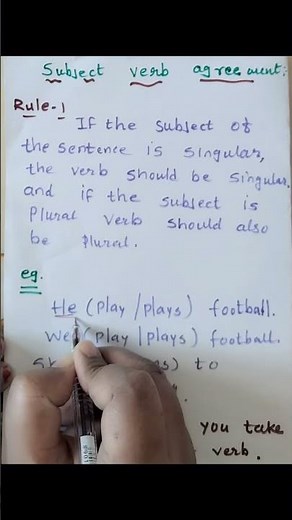 Subject verb agreement:
Rule-1
If the subject of
the sentence is singular,
the verb should be singular.
and if the subject is
plural verb should also
be plural.
eg.
He (play/plays) football.
We (play/plays) football.
to
you take
verb.